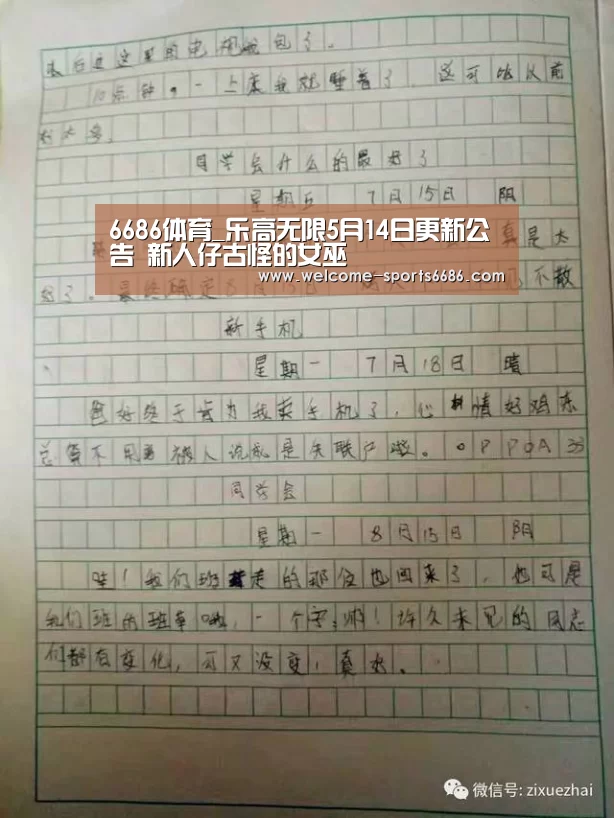 10点钟。一上床我就睡着了，这可比以前
好太多。
同学会什么的最好了
星期五 7月15日 阴
6686体育_乐高无限5月14日更新公
告 新人仔古怪的女巫
真是太
www.welcome-sports6686.com
不散
新手机
星期一 7月18日 晴
爸妈终于肯为我买手机了，心情好鸡冻
总算不用被人说成是失联户啦。OPPOA33
同学会
星期一 8月15日 阴
哇！我们班走的那位也回来了，他可是
我们班的班草哦，一个字：帅！许久未见的同志
们都有变化，可又没变，真好。
微信号: zixuezhai